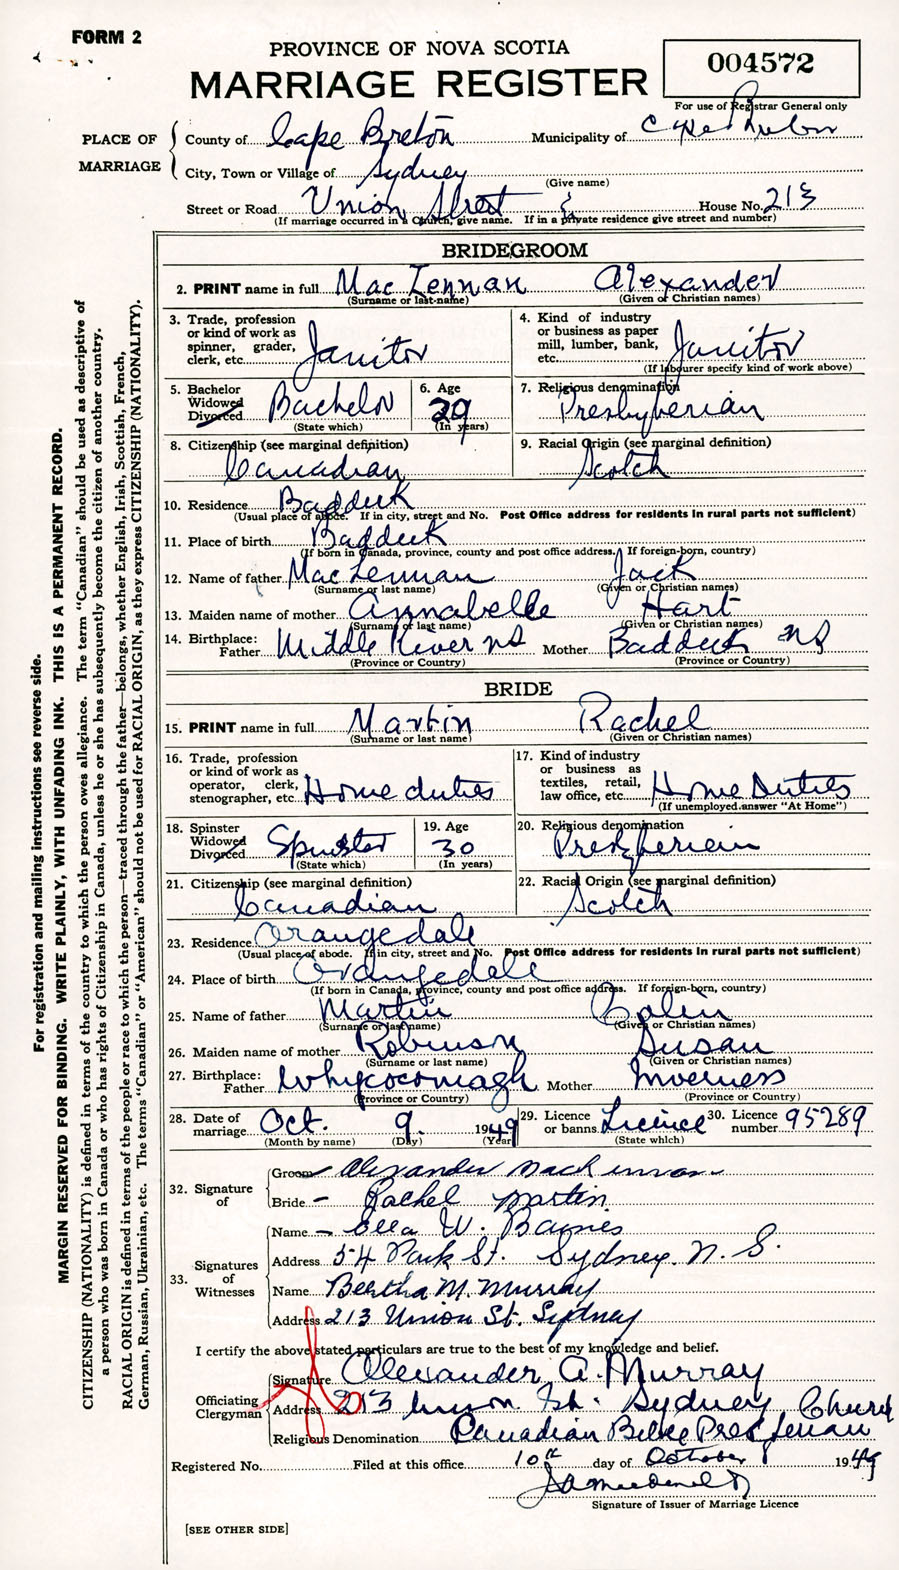 FORM 2
PROVINCE OF NOVA SCOTIA
MARRIAGE REGISTER
004572
For use of Registrar General only
PLACE OF MARRIAGE
County of Cape Breton Municipality of Cape Breton
City, Town or Village of Sydney
(Give name)
Street or Road Union Street House No. 213
(If marriage occurred in a Church, give name. If in a private residence give street and number)
BRIDEGROOM
2. PRINT name in full Mac Lennan Alexander
(Surname or last name) (Given or Christian names)
3. Trade, profession or kind of work as spinner, grader, clerk, etc. Janitor
4. Kind of industry or business as paper mill, lumber, bank, etc. Janitor
(If labourer specify kind of work above)
5. Bachelor Widowed Divorced Bachelor
(State which)
6. Age 39
(In years)
7. Religious denomination Presbyterian
8. Citizenship (see marginal definition) Canadian
9. Racial Origin (see marginal definition) Scotch
10. Residence Baddeck
(Usual place of abode. If in city, street and No. Post Office address for residents in rural parts not sufficient)
11. Place of birth Baddeck
(If born in Canada, province, county and post office address. If foreign-born, country)
12. Name of father MacLennan Jack
(Surname or last name) (Given or Christian names)
13. Maiden name of mother Annabelle Hart
(Surname or last name) (Given or Christian names)
14. Birthplace: Father Middle River NS Mother Baddeck NS
(Province or Country) (Province or Country)
BRIDE
15. PRINT name in full Martin Rachel
(Surname or last name) (Given or Christian names)
16. Trade, profession or kind of work as operator, clerk, stenographer, etc. Home duties
17. Kind of industry or business as textiles, retail, law office, etc. Home Duties
(If unemployed answer "At Home")
18. Spinster Widowed Divorced Spinster
(State which)
19. Age 30
(In years)
20. Religious denomination Presbyterian
21. Citizenship (see marginal definition) Canadian
22. Racial Origin (see marginal definition) Scotch
23. Residence Orangedale
(Usual place of abode. If in city, street and No. Post Office address for residents in rural parts not sufficient)
24. Place of birth Orangedale
(If born in Canada, province, county and post office address. If foreign-born, country)
25. Name of father Martin Colin
(Surname or last name) (Given or Christian names)
26. Maiden name of mother Robinson Susan
(Surname or last name) (Given or Christian names)
27. Birthplace: Father Whycocomagh Mother Inverness
(Province or Country) (Province or Country)
28. Date of marriage Oct. 9. 1949
(Month by name) (Day) (Year)
29. Licence or banns Licence
(State which)
30. Licence number 95289
32. Signature of
Groom Alexander MacLennan
Bride - Rachel Martin
33. Signatures of Witnesses
Name - Ella W. Baynes
Address 54 Park St. Sydney. N. S.
Name Beertha M. Murray
Address 213 Union St. Sydney
I certify the above stated particulars are true to the best of my knowledge and belief.
Officiating Clergyman
Signature Alexander A. Murray
Address 213 Union St. Sydney
Religious Denomination Canadian Presbyterian Church
Registered No. Filed at this office 10th day of October 1949
Signature of Issuer of Marriage Licence
[SEE OTHER SIDE]
For registration and mailing instructions see reverse side.
MARGIN RESERVED FOR BINDING. WRITE PLAINLY, WITH UNFADING INK. THIS IS A PERMANENT RECORD.
CITIZENSHIP (NATIONALITY) is defined in terms of the country to which the person owes allegiance. The term "Canadian" should be used as descriptive of
a person who was born in Canada or who has rights of Citizenship in Canada, unless he or she has subsequently become the citizen of another country.
RACIAL ORIGIN is defined in terms of the people or race to which the person—traced through the father—belongs, whether English, Irish, Scottish, French,
German, Russian, Ukrainian, etc. The terms "Canadian" or "American" should not be used for RACIAL ORIGIN, as they express CITIZENSHIP (NATIONALITY).